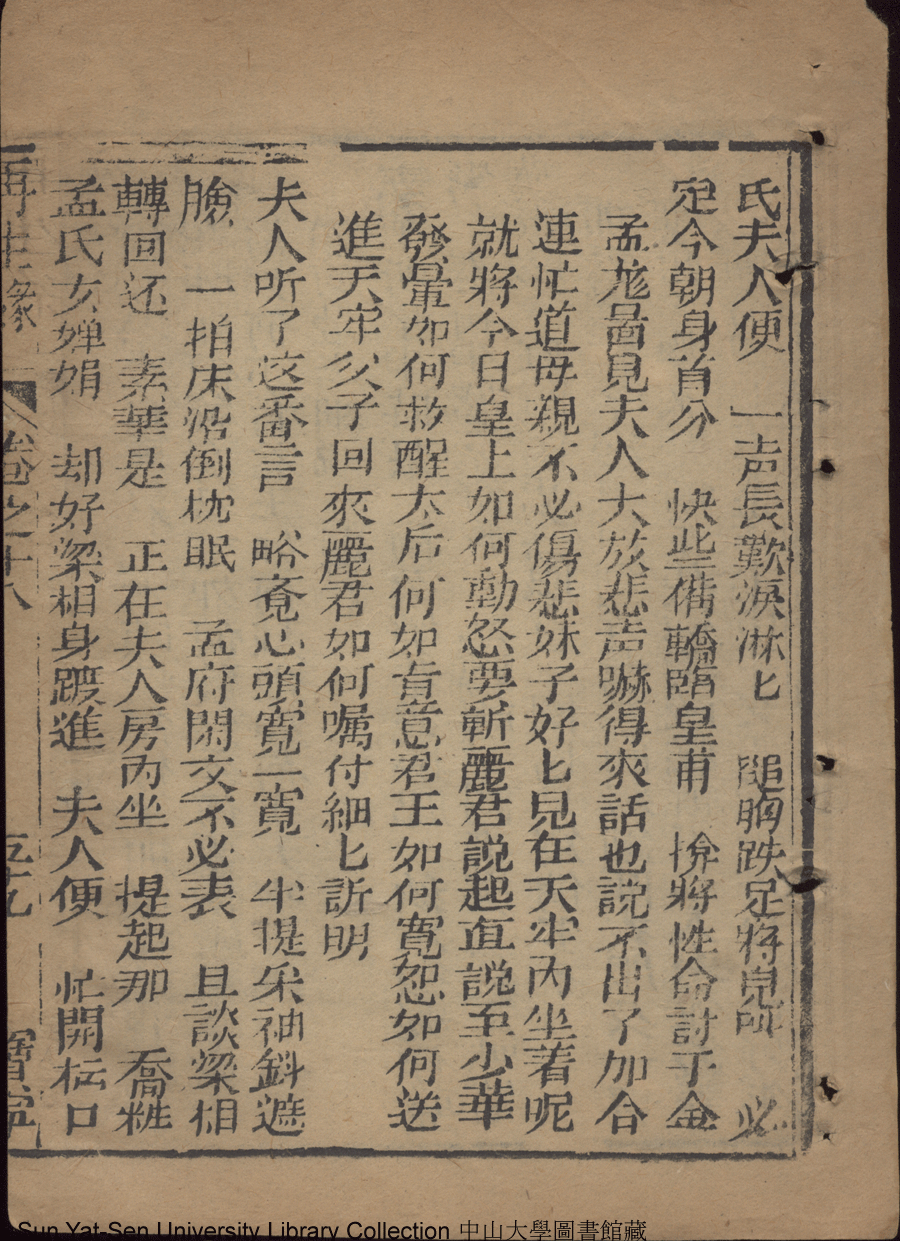 氏夫人便　一声長歎淚淋匕　搥胸跌足將兒叫　必
定今朝身首分　快些偹轎臨皇甫　拚將性命討千金
孟龍啚見夫人大放悲声嚇得來話也說不出了加合
連忙道母親不必傷悲妹子好匕見在天牢內坐着呢
就將今日皇上如何動怒要斬麗君說起直說至少華
發暈如何救醒太后何如肯意君王如何寬恕如何送
進天牢父子回來麗君如何嘱付細匕訢明
夫人听了这番言　略斉心頭寬一寬　半提朵袖斜遮
臉　一拍床沿倒枕眠　孟府閑文不必表　且談梁相
轉回还　素華是　正在夫人房內坐　提起那　喬粧
孟氏女嬋娟　却好梁相身踱進　夫人便　忙開枟口
再生緣　卷之十八　五十九　寶寧
Sun Yat-Sen University Library Collection 中山大學圖書館藏